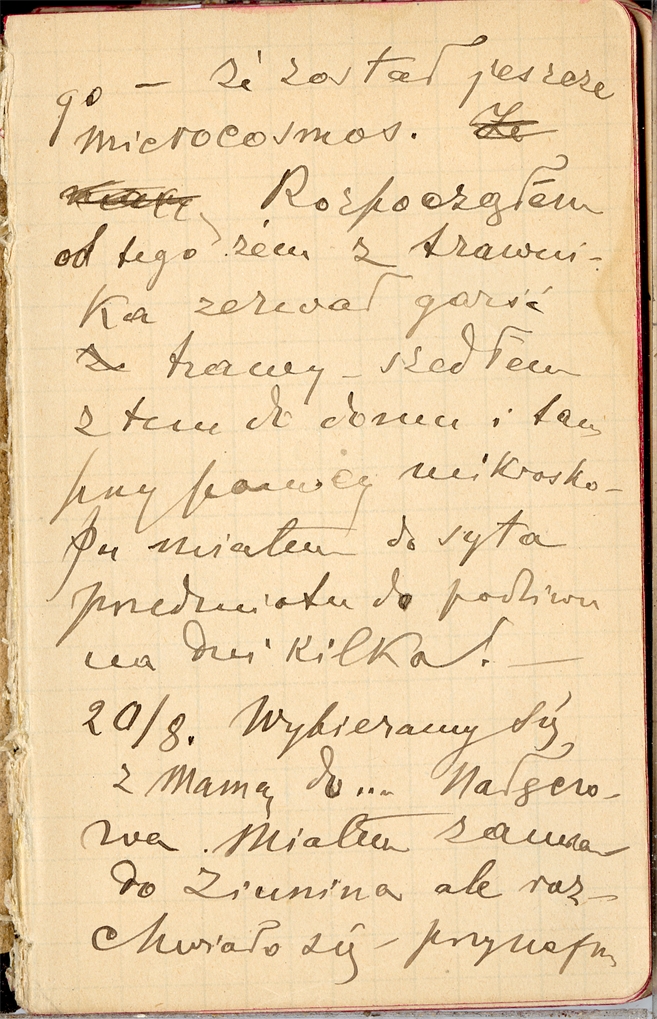 go — że został jeszcze
microcosmos. Że
Rozpocząłem
od tego żem z trawni-
ka zerwał garść
z trawy – szedłem
z tem do domu i tam
przy pomocy mikrosko-
pu miałem do syta
przedmiotu do podziwu
na dni kilka! —
20/8. Wybieramy się
z Mamą do...
wa. Miałem zamiar
do Ziunina ale roz-
chwiało się – przynajm